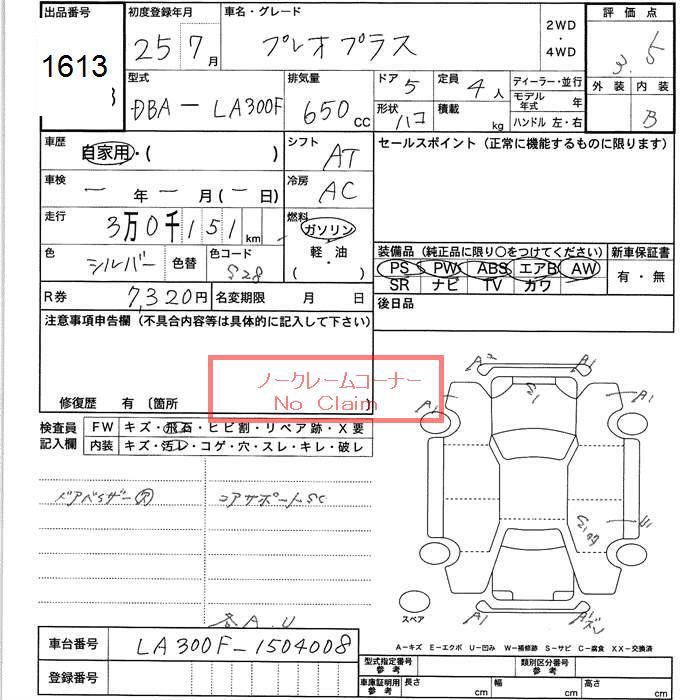 出品番号
1613
初度登録年月
25 7月
車名・グレード
プレオプラス
2WD
・
4WD
評価点
3.5
外装 内装
B
型式
DBA - LA300F
排気量
650 CC
ドア 5
定員 4人
形状 ハコ
積載 kg
ディーラー・並行
モデル年式 年
ハンドル 左・右
車歴
自家用・( )
シフト
AT
車検
一年 一月(一日)
冷房
AC
走行
3万0千151km
燃料
ガソリン
軽・油
( )
色
シルバー
色替
色コード
S28
R券
7,320円
名変期限 月 日
セールスポイント (正常に機能するものに限ります)
装備品 (純正品に限り〇をつけてください)
新車保証書
PS PW ABS エアB AW
SR ナビ TV カワ
有・無
後日品
注意事項申告欄 (不具合内容等は具体的に記入して下さい)
ノークレームコーナー
No Claim
修復歴 有 〔箇所
検査員記入欄
FW キズ・飛石・ヒビ割・リペア跡・X要
内装 キズ・汚レ・コゲ・穴・スレ・キレ・破レ
コアサポートSC
各A.U
A1
A1
A1
A1
スペア
A1
A-キズ E-エクボ U-凹み W-補修跡 S-サビ C-腐食 XX-交換済
車台番号
LA300F-1504008
登録番号
型式指定番号
参考
類別区分番号
参考
車庫証明用
参考
長さ cm
幅 cm
高さ cm